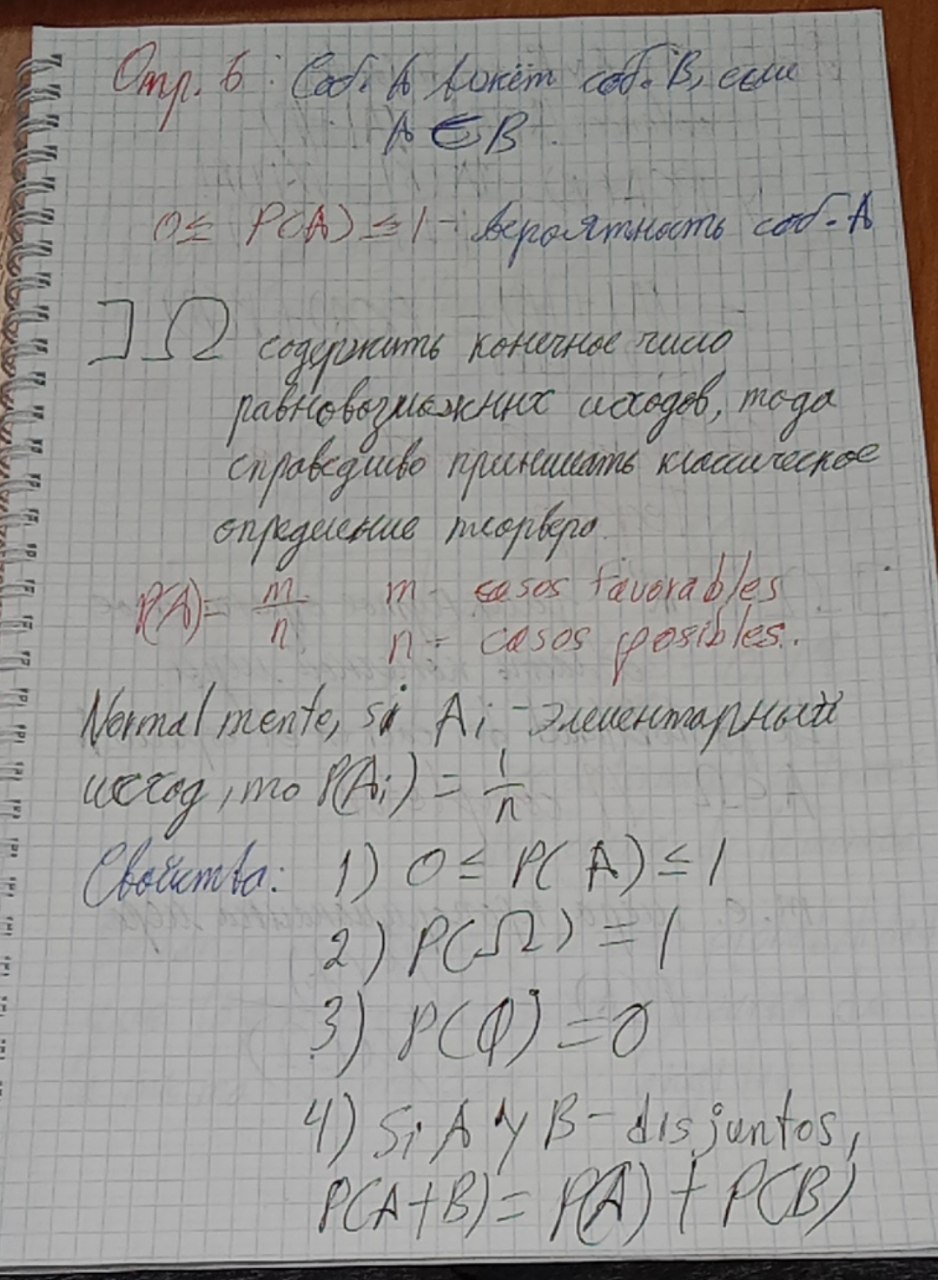 Опр. 6: Соб. A влечёт соб. B, если
A ⊂ B
0 ≤ P(A) ≤ 1 - вероятность соб. A
] Ω содержить конечное число
равновозможных исходов, тода
справедливо принимать классическое
определение теорвера.
P(A) = m/n m - casos favorables
n = casos posibles.
Normalmente, si Ai - элементарный
исход, то P(Ai) = 1/n
Свойства: 1) 0 ≤ P(A) ≤ 1
2) P(Ω) = 1
3) P(∅) = 0
4) Si A y B - disjuntos,
P(A+B) = P(A) + P(B)